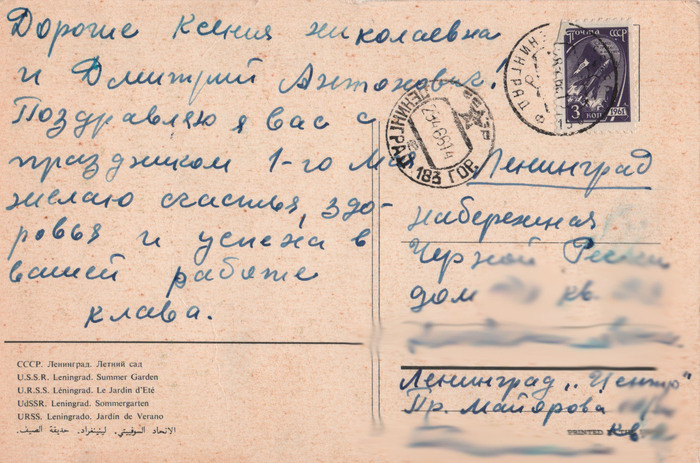 Дорогие Ксения Николаевна
и Дмитрий Антонович!
Поздравляю я вас с
праздником 1-го Мая
желаю счастья, здо-
ровья и успеха в
вашей работе
Клава.
СССР. Ленинград. Летний сад
U.S.S.R. Leningrad. Summer Garden
U.R.S.S. Léningrad. Le Jardin d'Eté
UdSSR. Leningrad. Sommergarten
URSS. Leningrado. Jardín de Verano
الاتحاد السوفييتي. لينينغراد. حديقة الصيف.
ПОЧТА СССР
3 КОП
1961
ЛЕНИНГРАД
ЛЕНИНГРАД
183 ГОР
Ленинград
набережная
Черной Речки
дом кв.
Ленинград „Центр"
Пр. Майорова
кв
PRINTED IN THE